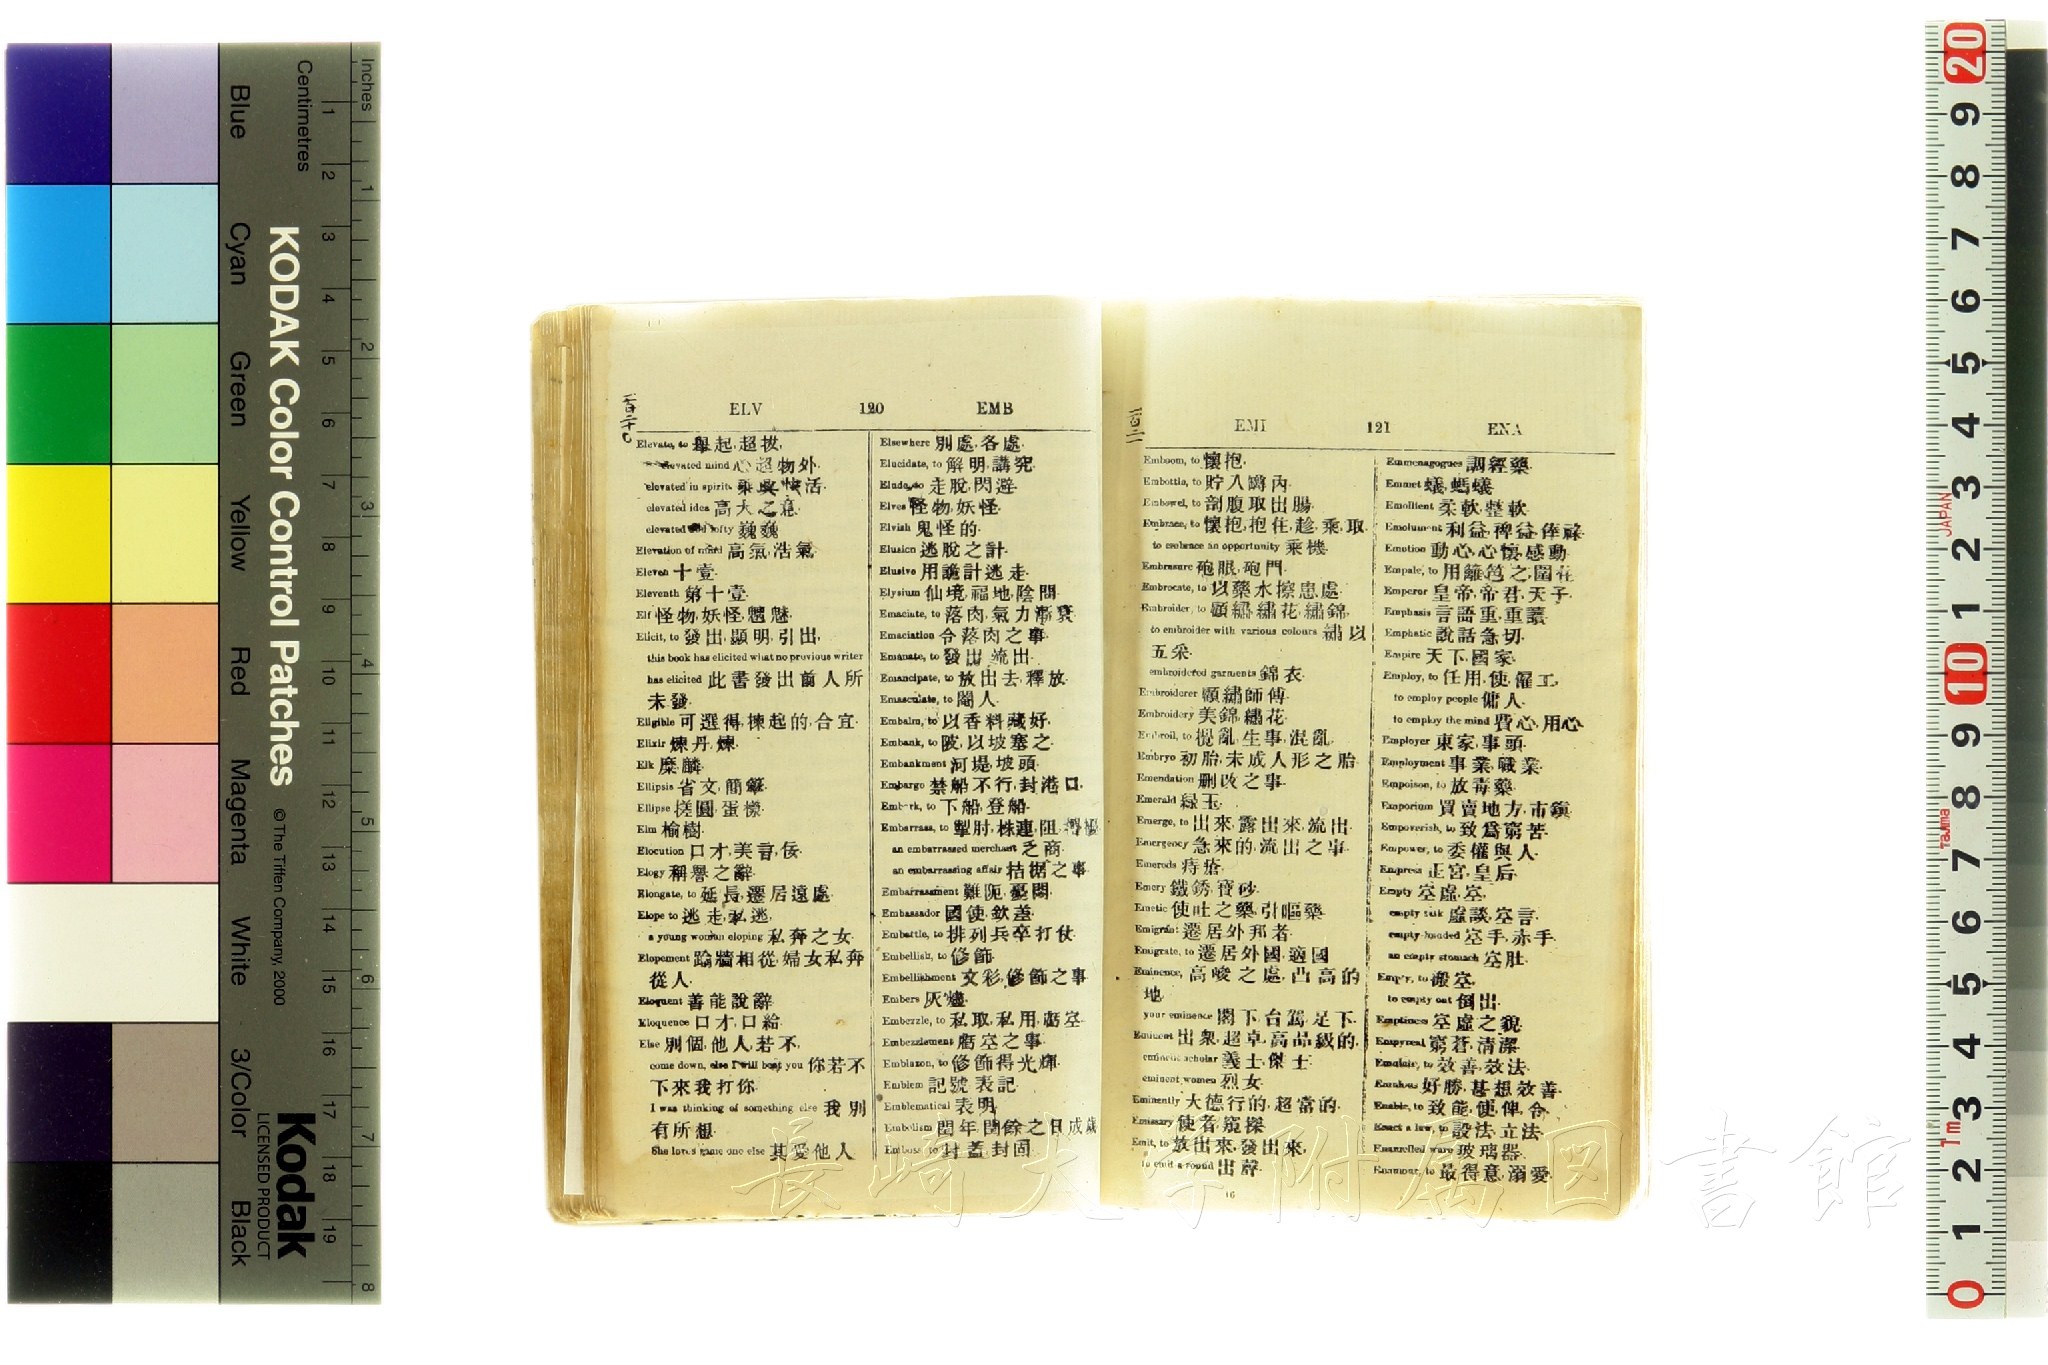 Inches
Centimetres
Blue
Cyan
Green
Yellow
Red
Magenta
White
3/Color
Black
KODAK Color Control Patches
© The Tiffen Company, 2000
Kodak
LICENSED PRODUCT
ELV 120 EMB
Elevate, to 舉起,超拔,
elevated mind 心超物外.
elevated in spirits 快活.
elevated idea 高大之意.
elevated lofty 巍巍
Elevation of mind 高氣,浩氣
Eleven 十壹.
Eleventh 第十壹.
Elf 怪物,妖怪,魑魅.
Elicit, to 發出,顯明,引出,
this book has elicited what no previous writer
has elicited 此書發出前人所
未發.
Eligible 可選得,揀起的,合宜.
Elixir 煉丹,煉.
Elk 麋麟.
Ellipsis 省文,簡筆.
Ellipse 橢圓,蛋樣.
Elm 榆樹.
Elocution 口才,美言,佞.
Elogy 稱譽之辭.
Elongate, to 延長,遷居遠處.
Elope to 逃走,私逃,
a young woman eloping 私奔之女.
Elopement 踰牆相從,婦女私奔
從人.
Eloquent 善能說辭.
Eloquence 口才,口給.
Else 別個,他人,若不,
come down, else I will beat you 你若不
下來我打你.
I was thinking of something else 我別
有所想.
She loves some one else 其愛他人
Elsewhere 別處,各處.
Elucidate, to 解明,講究.
Elude, to 走脫,閃避.
Elves 怪物,妖怪.
Elvish 鬼怪的.
Elusion 逃脫之計.
Elusive 用詭計逃走.
Elysium 仙境,福地,陰間.
Emaciate, to 落肉,氣力
Emaciation 令落肉之事.
Emanate, to 發出,流出.
Emancipate, to 放出去,釋放.
Emasculate, to 閹人.
Embalm, to 以香料藏好.
Embank, to 陂,以坡塞之.
Embankment 河堤,坡頭.
Embargo 禁船不行,封港口.
Embark, to 下船,登船.
Embarrass, to 掣肘,株連,阻
an embarrassed merchant 乏商.
an embarrassing affair 拮据之事
Embarrassment 難阨,憂悶.
Embassador 國使,欽差.
Embattle, to 排列兵卒打仗.
Embellish, to 修飾.
Embellishment 文彩,修飾之事
Embers 灰燼.
Embezzle, to 私取,私用,虧空.
Embezzlement 虧空之事.
Emblazon, to 修飾得光輝.
Emblem 記號,表記.
Emblematical 表明.
Embolism 閏年閏餘之日成歲
Emboss to 封蓋,封固
EMI 121 ENA
Embosom, to 懷抱.
Embottle, to 貯入罇內.
Embowel, to 剖腹取出腸.
Embrace, to 懷抱,抱住,趁,乘,取.
to embrace an opportunity 乘機.
Embrasure 砲眼,砲門.
Embrocate, to 以藥水擦患處.
Embroider, to 顧繡,繡花,繡錦,
to embroider with various colours 繡以
五采.
embroidered garments 錦衣.
Embroiderer 顧繡師傅.
Embroidery 美錦,繡花.
Embroil, to 攪亂,生事,混亂.
Embryo 初胎,未成人形之胎.
Emendation 刪改之事.
Emerald 綠玉.
Emerge, to 出來,露出來,流出.
Emergency 急來的,流出之事.
Emerods 痔瘡.
Emery 鐵銹,寶砂.
Emetic 使吐之藥,引嘔藥.
Emigrant 遷居外邦者.
Emigrate, to 遷居外國,適國
Eminence, 高峻之處,凸高的
地.
your eminence 閣下,台駕,足下.
Eminent 出衆,超卓,高品級的.
eminent scholar 義士,傑士.
eminent women 烈女.
Eminently 大德行的,超當的.
Emissary 使者,窺探.
Emit, to 放出來,發出來,
to emit a sound 出聲.
16
Emmenagogues 調經藥.
Emmet 蟻,螞蟻.
Emollient 柔軟,整軟.
Emolument 利益,裨益,俸祿.
Emotion 動心,心懷,感動.
Empale, to 用籬笆之,圍在
Emperor 皇帝,帝君,天子.
Emphasis 言語重,重讀.
Emphatic 說話急切.
Empire 天下,國家.
Employ, to 任用,使,僱工,
to employ people 傭人.
to employ the mind 費心,用心.
Employer 東家,事頭.
Employment 事業,職業.
Empoison, to 放毒藥.
Emporium 買賣地方,市鎮.
Empoverish, to 致爲窮苦.
Empower, to 委權與人.
Empress 正宮,皇后
Empty 空虛,空.
empty talk 虛談,空言.
empty-handed 空手,赤手.
an empty stomach 空肚.
Empty, to 搬空.
to empty out 倒出.
Emptiness 空虛之貌.
Empyreal 窮蒼,清潔.
Emulate, to 效善,效法.
Emulous 好勝,甚想效善.
Enable, to 致能,使,俾,令.
Enact a law, to 設法,立法.
Enamelled ware 玻璃器.
Enamour, to 最得意,溺愛.
長崎大学附属図書館
JAPAN
Tajima
1m